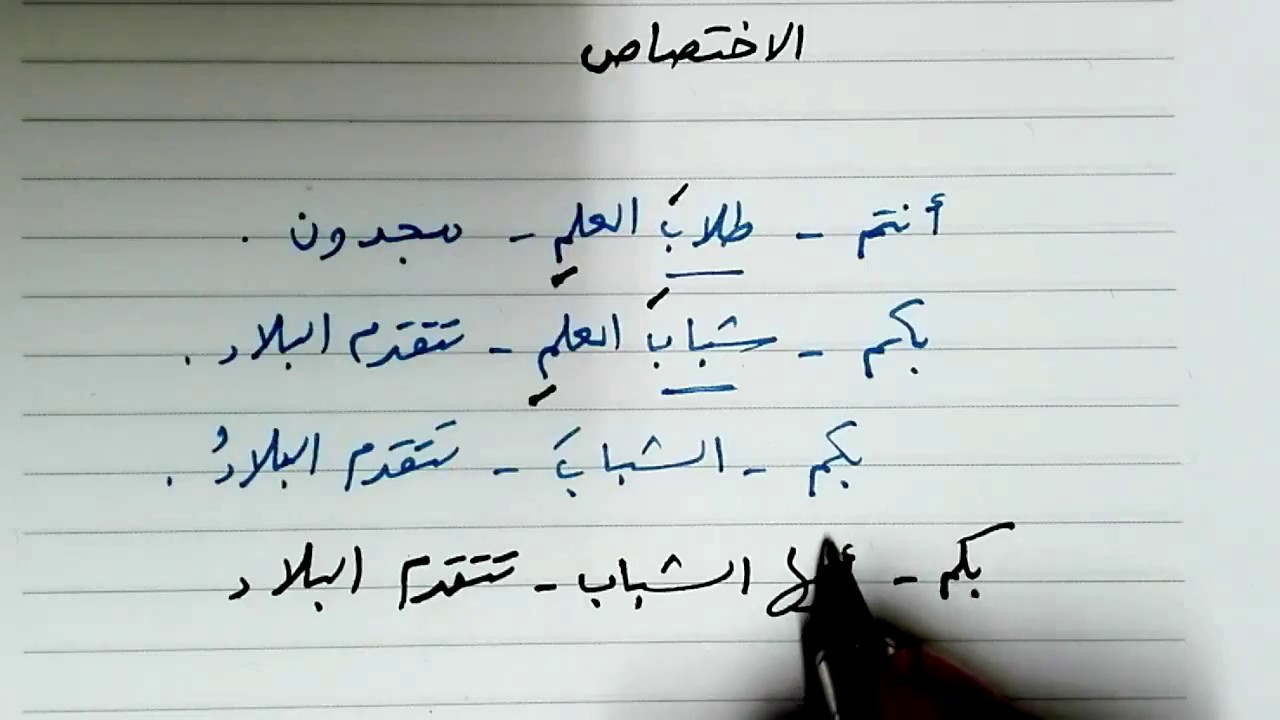 الاختصاص
أنتم - طلابَ العلمِ - مجدون .
بكم - شبابَ العلمِ - تتقدم البلاد .
بكم - الشبابَ - تَتَقدم البلادُ .
بكم - الشباب - تتقدم البلاد